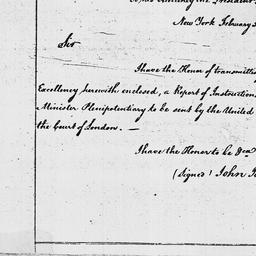 New York February
Sir
I have the Honor of transmitti
Excellency herewith enclosed, a Report of Instruction
Minister Plenipotentiary to be sent by the United
the Court of London. —
I have the Honor to be &ca
(Signed) John J